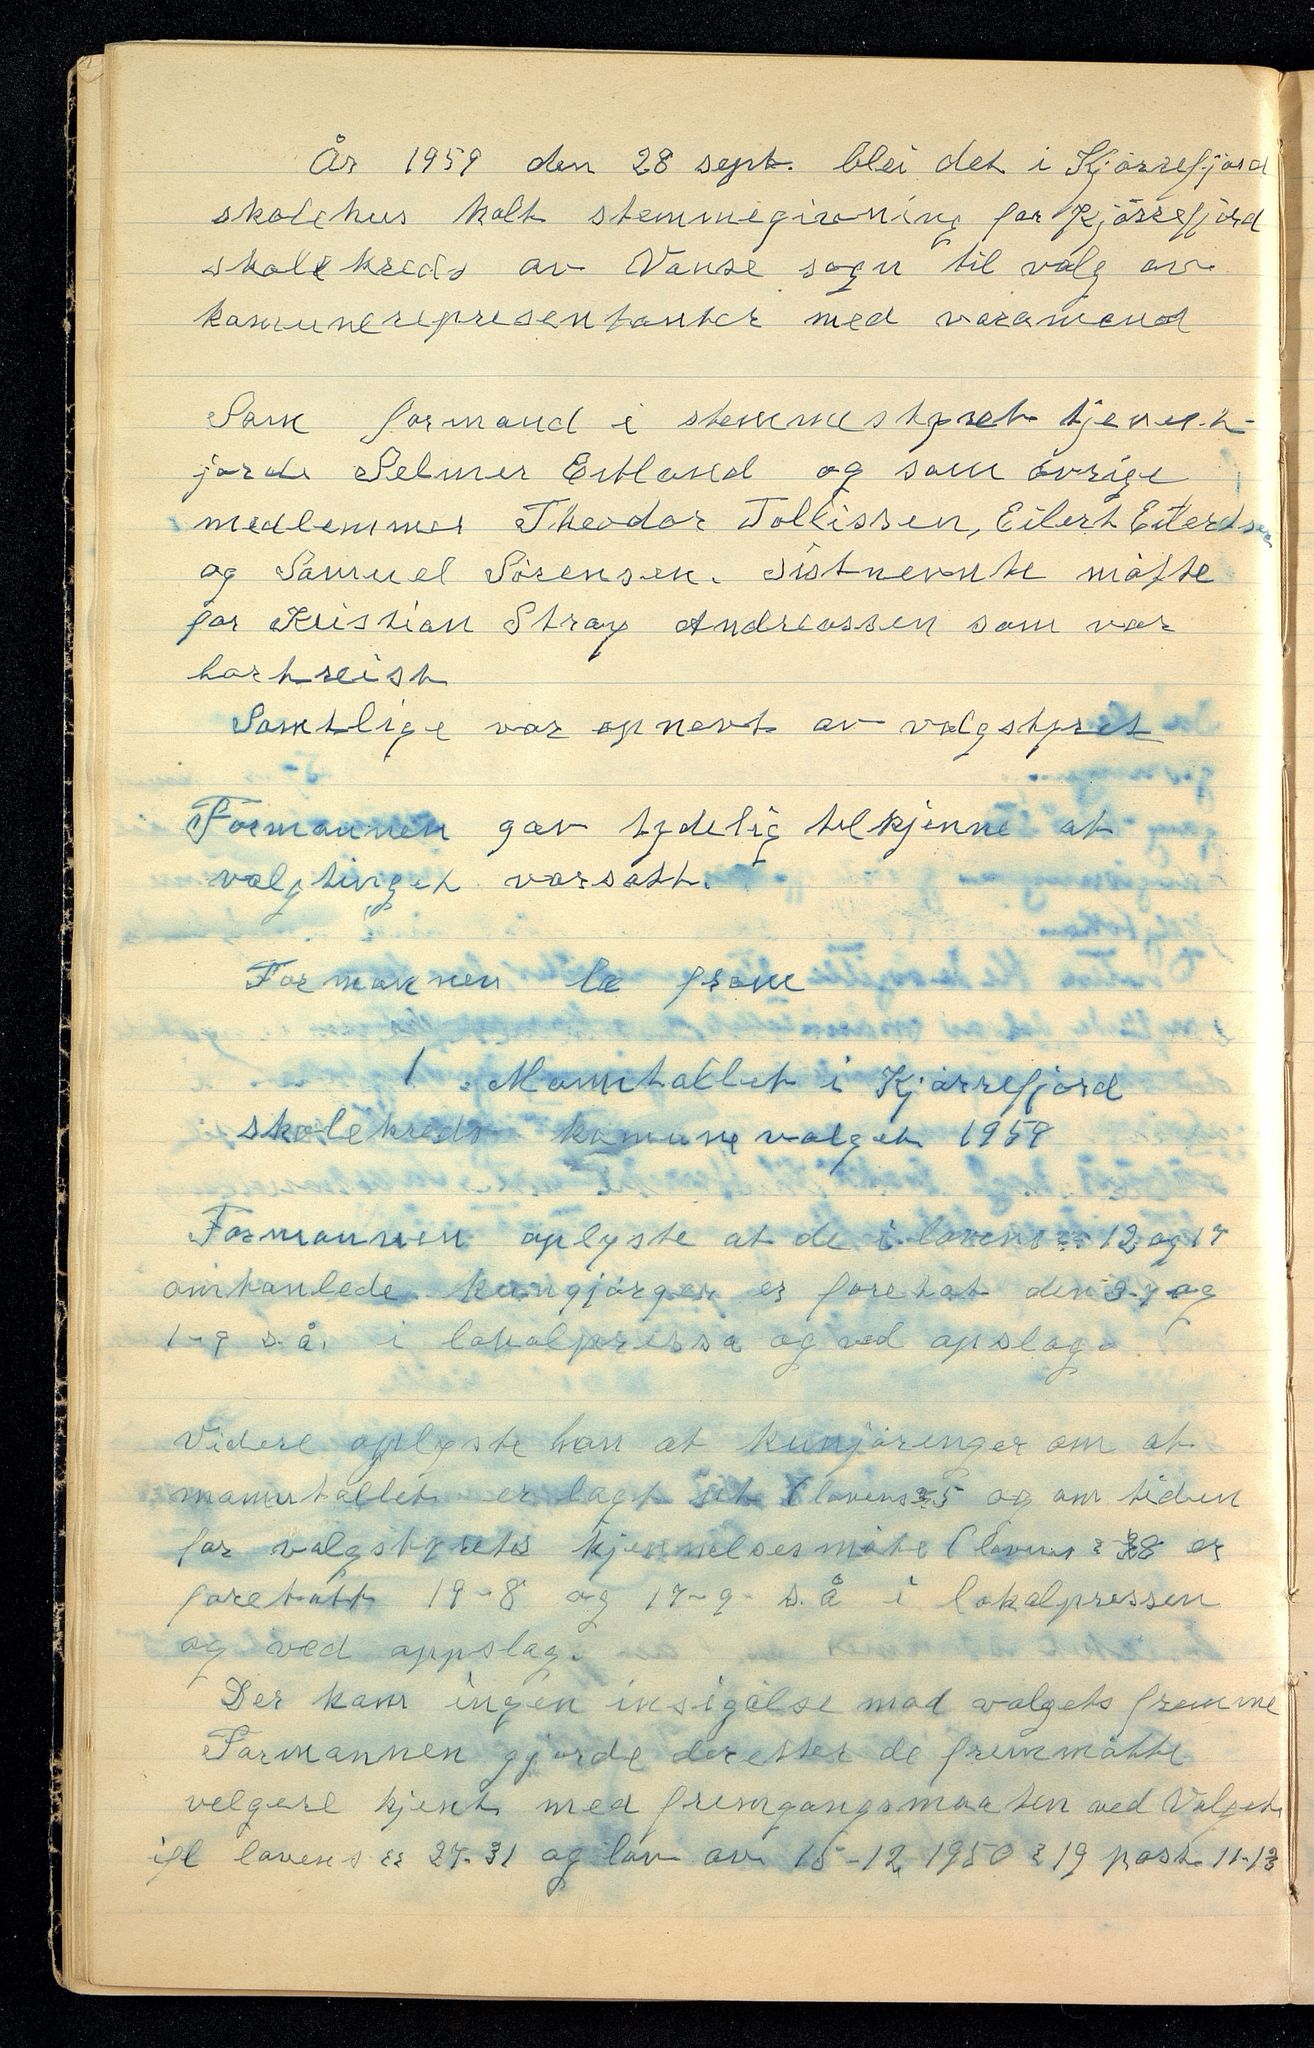 År 1959 den 28 sept. blei det i Kjørrefjord
skolehus holt stemmegivning for Kjørrefjord
skolekreds av Vanse sogn til valg av
komunerepresentanter med varamend
Som formand i stemmestyret tjenest-
jorde Selmer Ertland og som øvrige
medlemmer Theodor Tollissen, Eilert Eilertsen
og Samuel Sørensen. Sistnevnte møtte
for Kristian Stray Andreassen som var
bortreist
Samtlige var opnevt av valgstyret
Formannen gav tydelig tilkjenne at
valgtinget var satt.
Formannen la fram
1. Manntallet i Kjørrefjord
skolekreds komunevalget 1959
Formannen oplyste at de i lovens §§ 12 og 17
omhanlede kungjørger er foretat den 3-7 og
1-9 s.å. i lokalpressa og ved opslag.
Videre oplyste han at kunjøringer om at
manntallet er lagt ut (lovens § 5 og om tiden
for valgstyrets kjennelsesmøte (lovens § 8 er
foretatt 19-8 og 17-9 s.å i lokalpressen
og ved oppslag.
Der kom ingen insigelse mod valgets fremme
Formannen gjorde deretter de fremmøtte
velgere kjent med fremgangsmaaten ved Valget
ifl lovens §§ 27-31 og lov av 15-12 1950 § 19 post 11-13